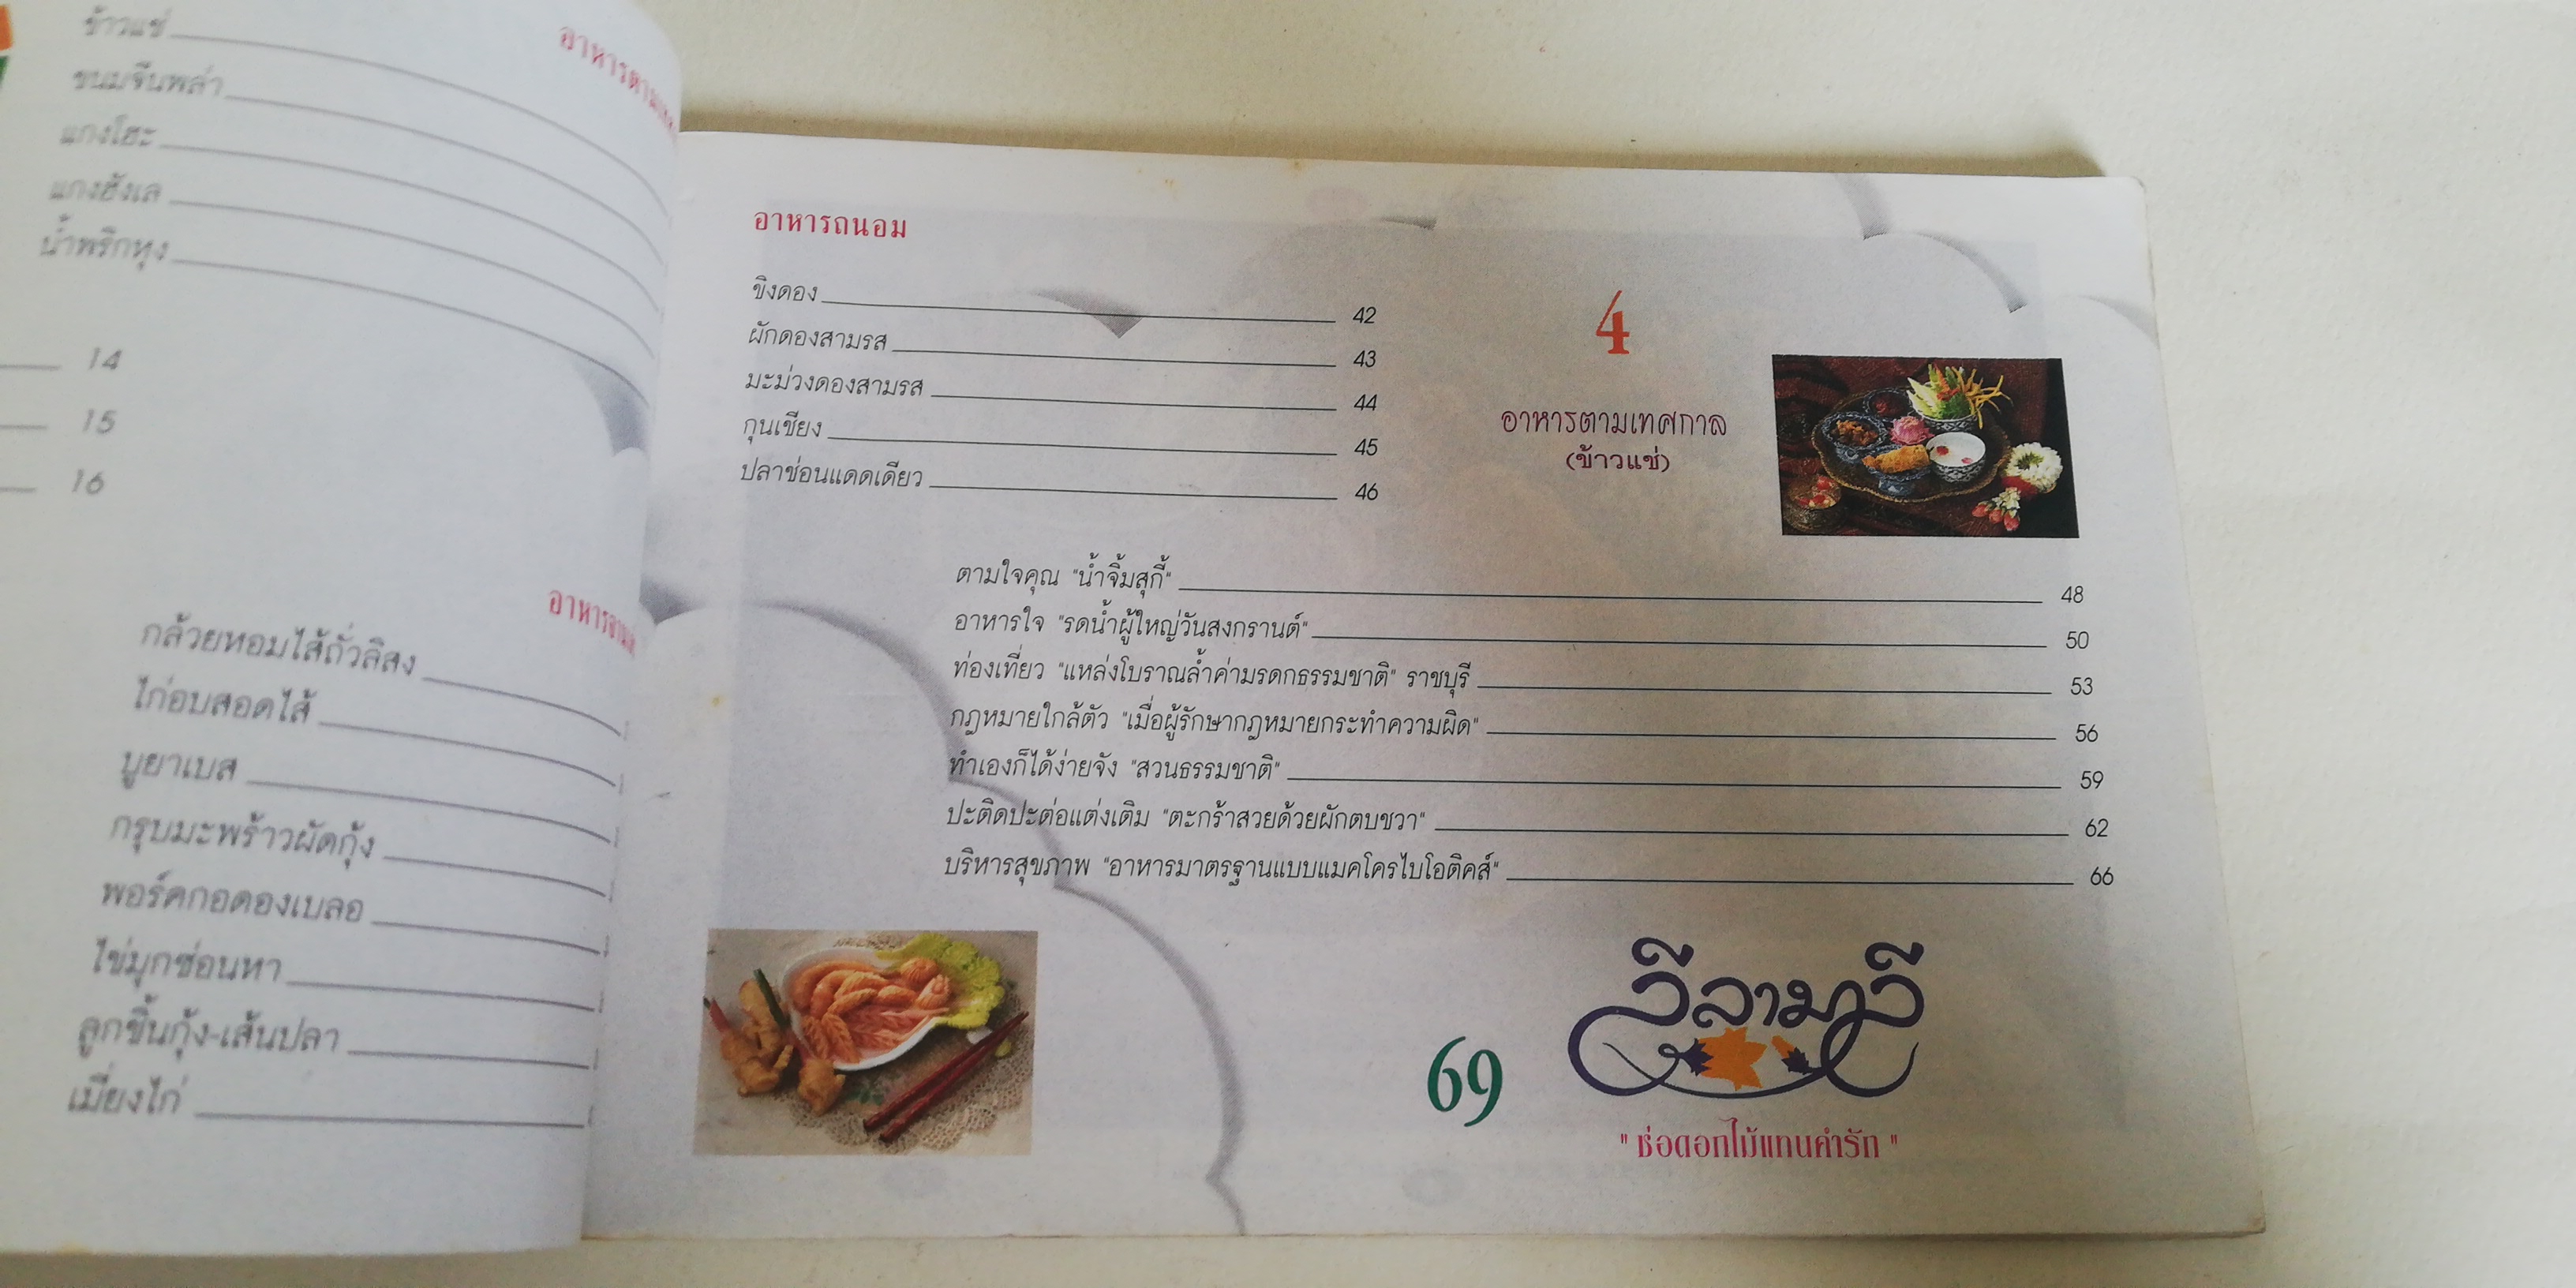 ข้าวแช่
ขนมจีนพล่า
แกงโฮะ
แกงฮังเล
น้ำพริกหนุ่ง
14
15
16
กล้วยหอมไส้ถั่วลิสง
ไก่อบสอดไส้
บูยาเบส
กรุบมะพร้าวผัดกุ้ง
พอร์คกอดองเบลอ
ไข่มุกซ่อนหา
ลูกชิ้นกุ้ง-เส้นปลา
เมี่ยงไก่
อาหารถนอม
ขิงดอง 42
ผักดองสามรส 43
มะม่วงดองสามรส 44
กุนเชียง 45
ปลาช่อนแดดเดียว 46
4
อาหารตามเทศกาล
(ข้าวแช่)
ตามใจคุณ "น้ำจิ้มสุกี้" 48
อาหารใจ "รดน้ำผู้ใหญ่วันสงกรานต์" 50
ท่องเที่ยว "แหล่งโบราณล้ำค่ามรดกธรรมชาติ" ราชบุรี 53
กฎหมายใกล้ตัว "เมื่อผู้รักษากฎหมายกระทำความผิด" 56
ทำเองก็ได้ง่ายจัง "สวนธรรมชาติ" 59
ปะติดปะต่อแต่งเติม "ตะกร้าสวยด้วยผักตบชวา" 62
บริหารสุขภาพ "อาหารมาตรฐานแบบแมคโครไบโอติคส์" 66
69
ลีลามาลี
"ช่อดอกไม้แทนคำรัก"